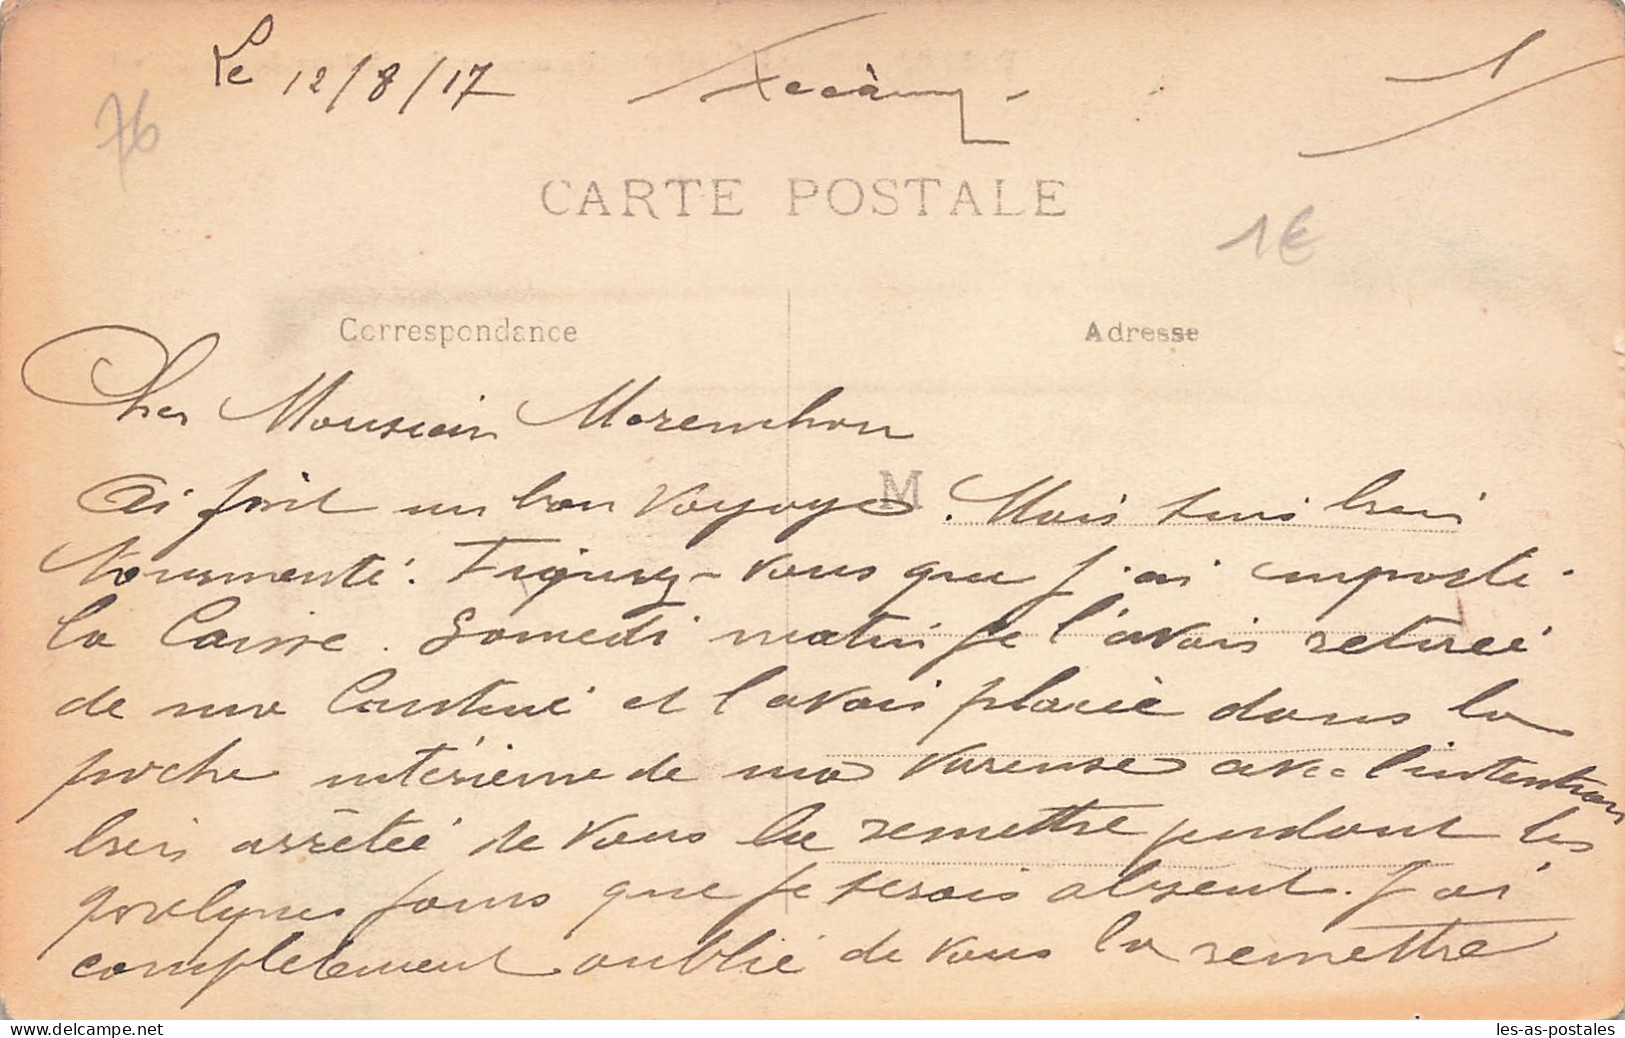 Le 12/8/17 Fécamp - 1
76
CARTE POSTALE
1€
Correspondance Adresse
Cher Monsieur Moremchon
M
Ai fait un bon voyage. Mais suis bien
tourmenté. Figurez-vous que j'ai emporté
la Caisse. Samedi matin je l'avais retirée
de ma Cantine et l'avais placée dans la
poche intérieure de ma vareuse avec l'intention
bien arrêtée de vous la remettre pendant les
quelques jours que je serais absent. J'ai
complètement oublié de vous la remettre
Delcampe.net les-as-postales